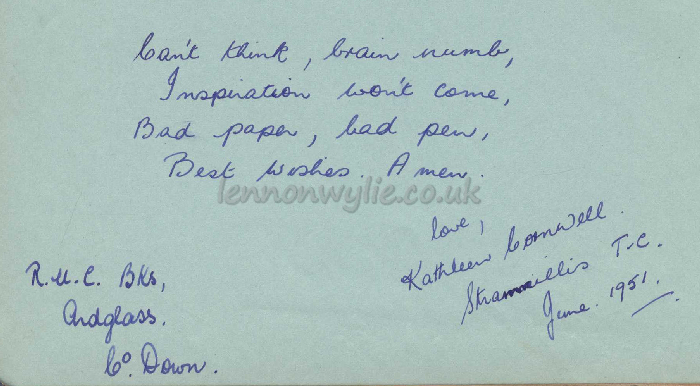 Can't think, brain numb,
Inspiration won't come,
Bad paper, bad pen,
Best wishes. Amen.
lennonwylie.co.uk
love,
Kathleen Cornwell.
Stranmillis T.C.
June. 1951.
R.U.C. Bks,
Ardglass.
Co. Down.